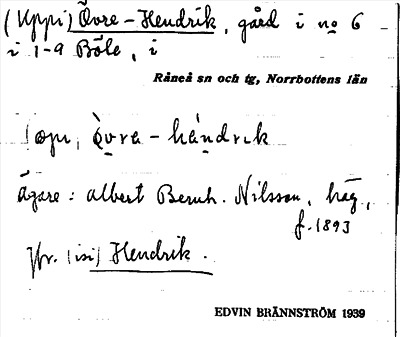 (Uppi) Övre-Hendrik, gård i no 6 -
i 1-9 Böle, i
Råneå sn och tg, Norrbottens län
övra - händrık
ägare: Albert Bernh. Nilsson, häg.,
f. 1893
Jfr. (isi) Hendrik.
EDVIN BRÄNNSTRÖM 1939